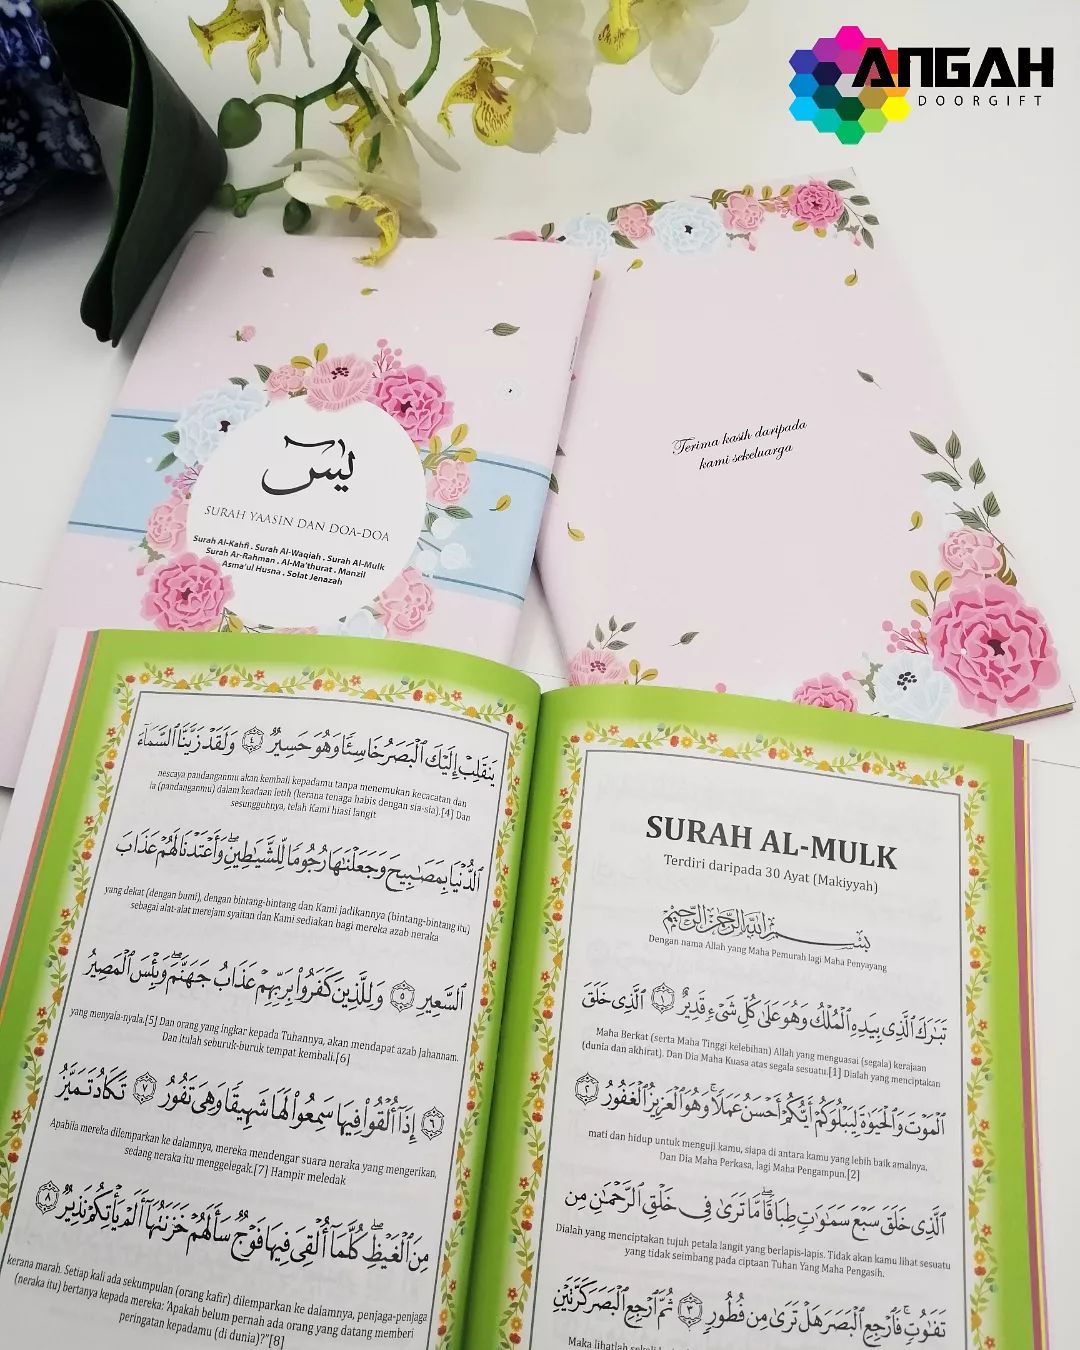 ANGAH
DOORGIFT
يسٓ
SURAH YAASIN DAN DOA-DOA
Surah Al-Kahfi . Surah Al-Waqiah . Surah Al-Mulk
Surah Ar-Rahman . Al-Ma'thurat . Manzil
Asma'ul Husna . Solat Jenazah
Terima kasih daripada
kami sekeluarga
يَنقَلِبْ إِلَيْكَ ٱلْبَصَرُ خَاسِئًا وَهُوَ حَسِيرٌ ٤ وَلَقَدْ زَيَّنَّا ٱلسَّمَآءَ
nescaya pandanganmu akan kembali kepadamu tanpa menemukan kecacatan dan
ia (pandanganmu) dalam keadaan letih (kerana tenaga habis dengan sia-sia).[4] Dan
sesungguhnya, telah Kami hiasi langit
ٱلدُّنْيَا بِمَصَـٰبِيحَ وَجَعَلْنَـٰهَا رُجُومًا لِّلشَّيَـٰطِينِ ۖ وَأَعْتَدْنَا لَهُمْ عَذَابَ
yang dekat (dengan bumi), dengan bintang-bintang dan Kami jadikannya (bintang-bintang itu)
sebagai alat-alat merejam syaitan dan Kami sediakan bagi mereka azab neraka
ٱلسَّعِيرِ ٥ وَلِلَّذِينَ كَفَرُوا۟ بِرَبِّهِمْ عَذَابُ جَهَنَّمَ ۖ وَبِئْسَ ٱلْمَصِيرُ
yang menyala-nyala.[5] Dan orang yang ingkar kepada Tuhannya, akan mendapat azab Jahannam.
Dan itulah seburuk-buruk tempat kembali.[6]
٦ إِذَآ أُلْقُوا۟ فِيهَا سَمِعُوا۟ لَهَا شَهِيقًا وَهِىَ تَفُورُ ٧ تَكَادُ تَمَيَّزُ
Apabila mereka dilemparkan ke dalamnya, mereka mendengar suara neraka yang mengerikan,
sedang neraka itu menggelegak.[7] Hampir meledak
مِنَ ٱلْغَيْظِ ۖ كُلَّمَآ أُلْقِىَ فِيهَا فَوْجٌ سَأَلَهُمْ خَزَنَتُهَآ أَلَمْ يَأْتِكُمْ نَذِيرٌ ٨
kerana marah. Setiap kali ada sekumpulan (orang kafir) dilemparkan ke dalamnya, penjaga-penjaga
(neraka itu) bertanya kepada mereka: 'Apakah belum pernah ada orang yang datang memberi
peringatan kepadamu (di dunia)?"[8]
SURAH AL-MULK
Terdiri daripada 30 Ayat (Makiyyah)
بِسْمِ ٱللَّهِ ٱلرَّحْمَـٰنِ ٱلرَّحِيمِ
Dengan nama Allah yang Maha Pemurah lagi Maha Penyayang
تَبَـٰرَكَ ٱلَّذِى بِيَدِهِ ٱلْمُلْكُ وَهُوَ عَلَىٰ كُلِّ شَىْءٍ قَدِيرٌ ١ ٱلَّذِى خَلَقَ
Maha Berkat (serta Maha Tinggi kelebihan) Allah yang menguasai (segala) kerajaan
(dunia dan akhirat). Dan Dia Maha Kuasa atas segala sesuatu.[1] Dialah yang menciptakan
ٱلْمَوْتَ وَٱلْحَيَوٰةَ لِيَبْلُوَكُمْ أَيُّكُمْ أَحْسَنُ عَمَلًا ۚ وَهُوَ ٱلْعَزِيزُ ٱلْغَفُورُ ٢
mati dan hidup untuk menguji kamu, siapa di antara kamu yang lebih baik amalnya.
Dan Dia Maha Perkasa, lagi Maha Pengampun.[2]
ٱلَّذِى خَلَقَ سَبْعَ سَمَـٰوَٰتٍ طِبَاقًا ۖ مَّا تَرَىٰ فِى خَلْقِ ٱلرَّحْمَـٰنِ مِن
Dialah yang menciptakan tujuh petala langit yang berlapis-lapis. Tidak akan kamu lihat sesuatu
yang tidak seimbang pada ciptaan Tuhan Yang Maha Pengasih.
تَفَـٰوُتٍ ۖ فَٱرْجِعِ ٱلْبَصَرَ هَلْ تَرَىٰ مِن فُطُورٍ ٣ ثُمَّ ٱرْجِعِ ٱلْبَصَرَ كَرَّتَيْنِ
Maka lihatlah